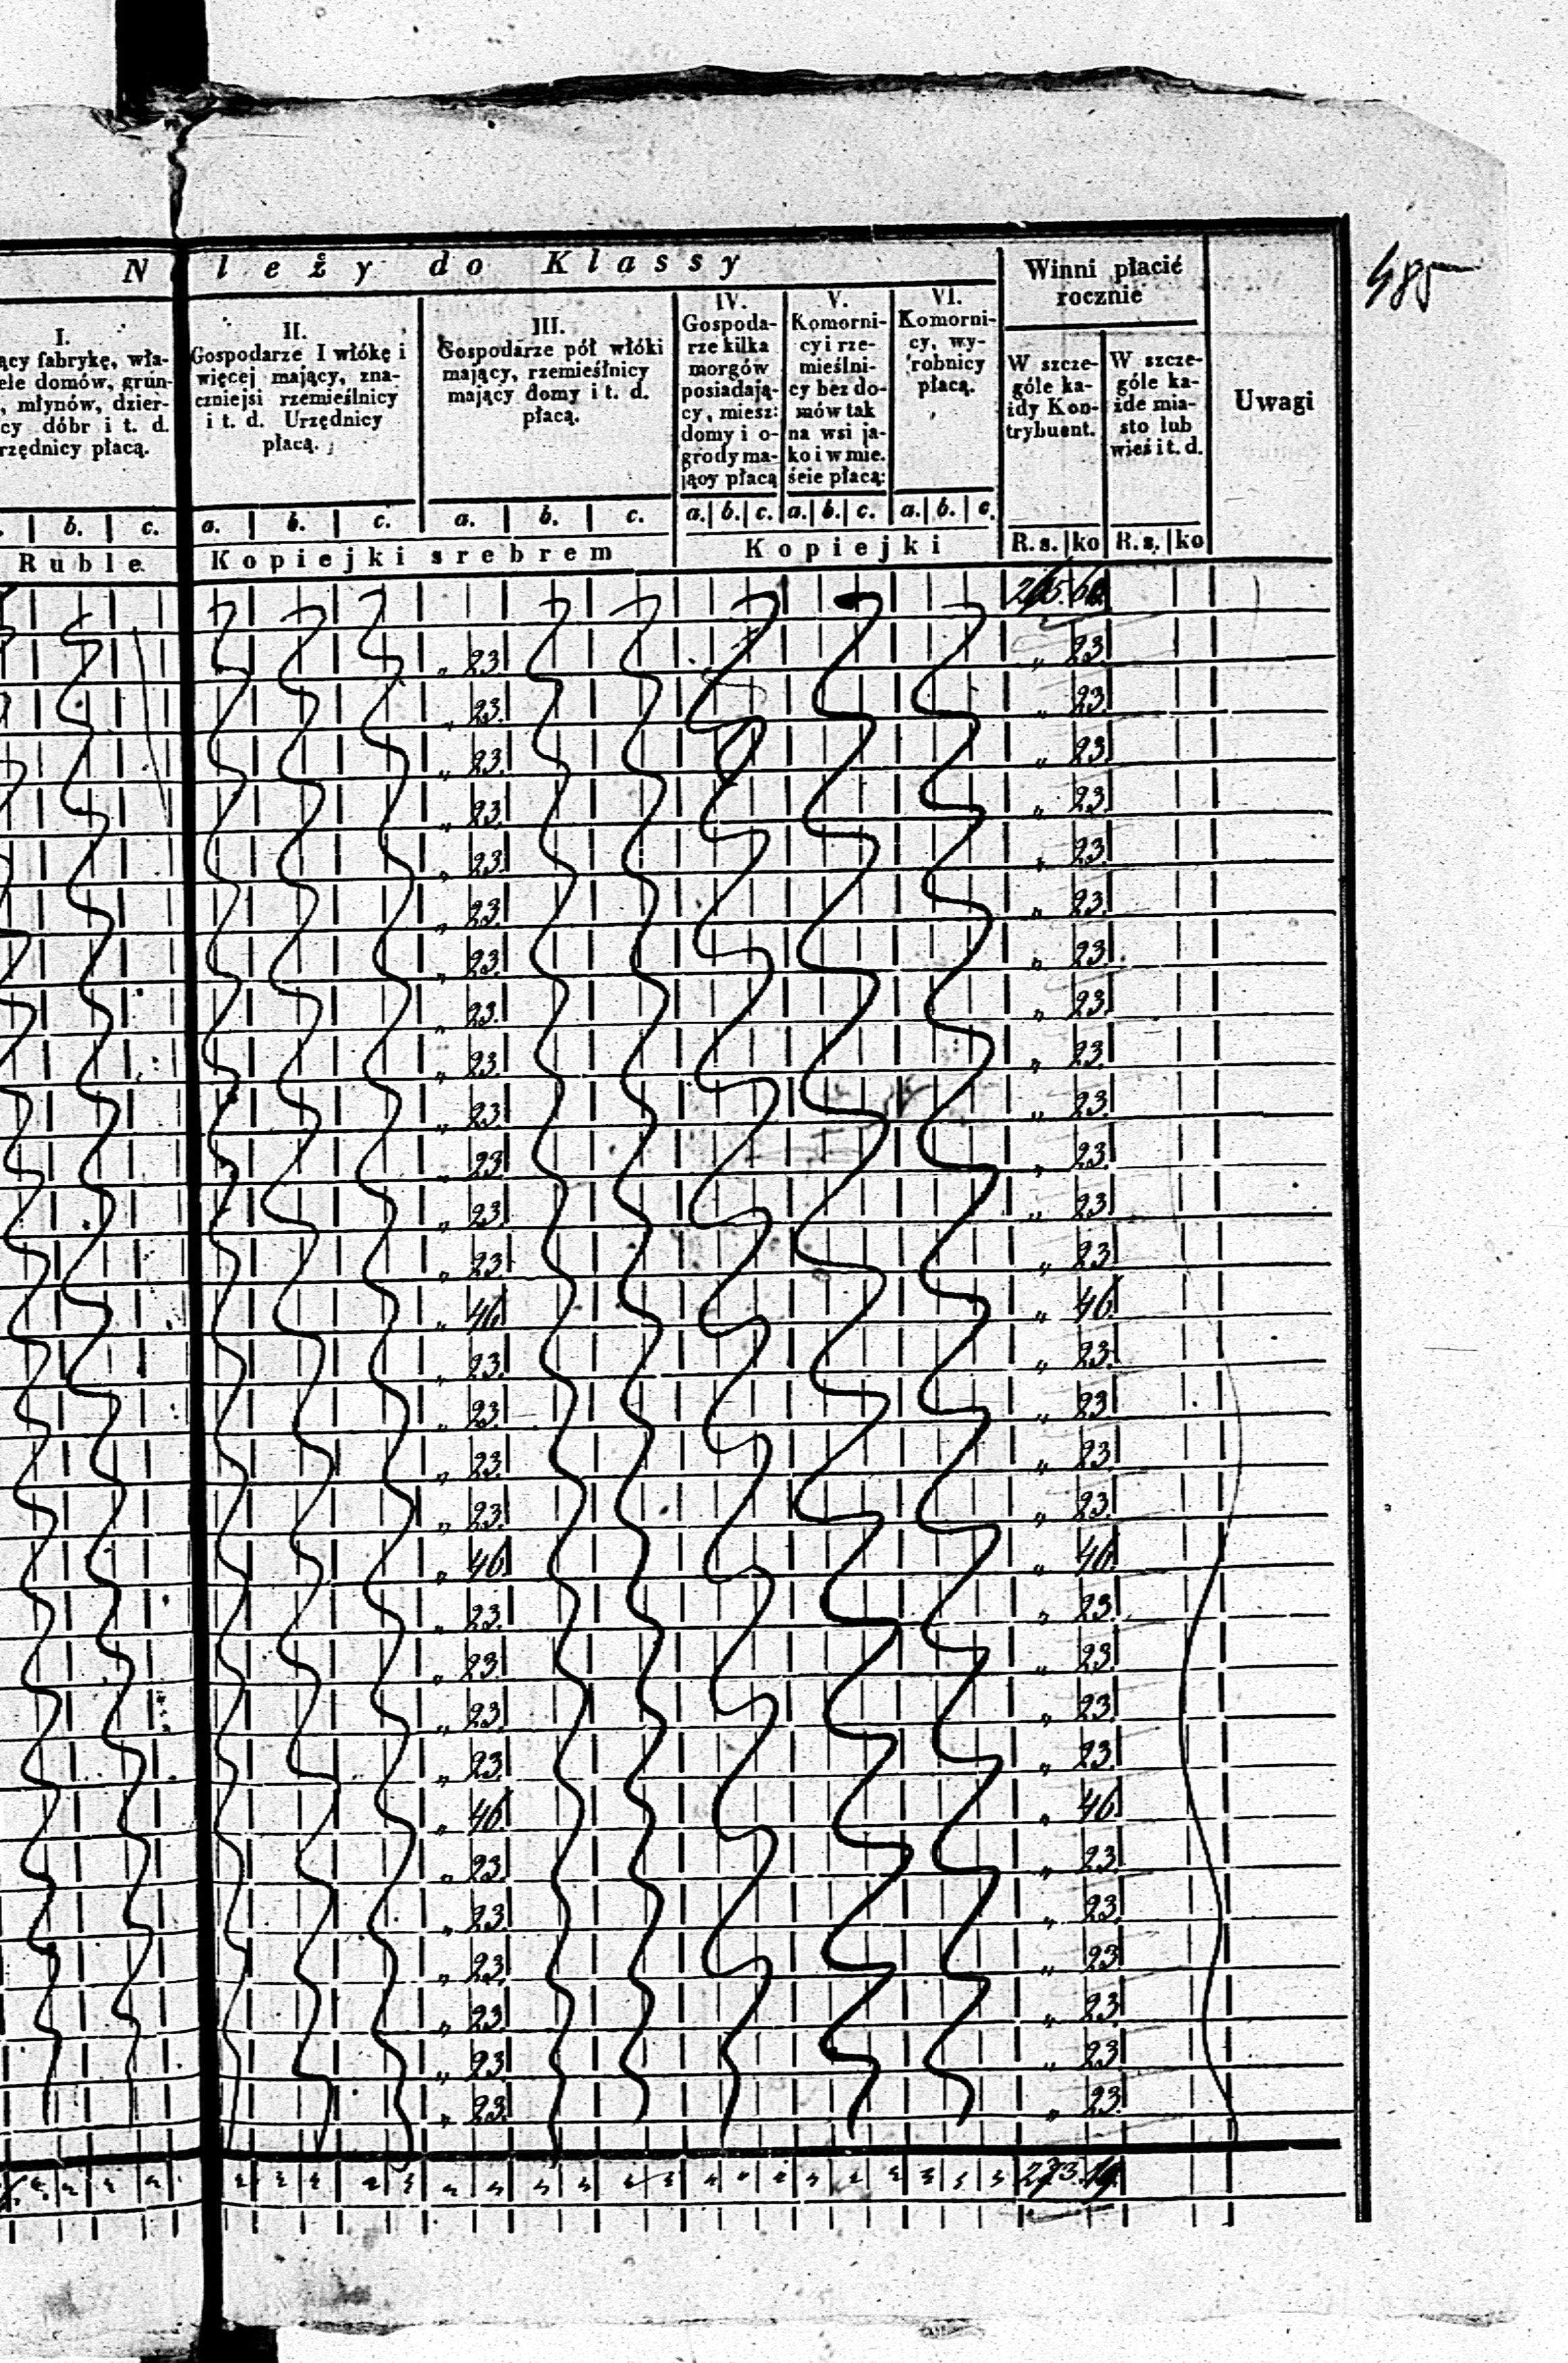 485
Należy do Klassy
Winni płacić
rocznie
Uwagi
I.
ący fabrykę, wła-
ele domów, grun-
, młynów, dzier-
cy dóbr i t. d.
rzędnicy płacą.
II.
Gospodarze I włókę i
więcej mający, zna-
czniejsi rzemieślnicy
i t. d. Urzędnicy
płacą.
III.
Gospodarze pół włóki
mający, rzemieślnicy
mający domy i t. d.
płacą.
IV.
Gospoda-
rze kilka
morgów
posiadają-
cy, miesz:
domy i o-
grody ma-
jący płacą
V.
Komorni-
cy i rze-
mieślni-
cy bez do-
mów tak
na wsi ja-
ko i w mie.
ście płacą:
VI.
Komorni-
cy, wy-
robnicy
płacą.
W szcze-
góle ka-
żdy Kon-
trybuent.
W szcze-
góle ka-
żde mia-
sto lub
wieś i t. d.
b. c. a. b. c. a. b. c. a. b. c. a. b. c. a. b. c.
Ruble. Kopiejki srebrem Kopiejki R. s. ko R. s. ko
265. 60.
„ 23. „ 23.
„ 23. „ 23.
„ 23. „ 23.
„ 23. „ 23.
„ 23. „ 23.
„ 23. „ 23.
„ 23. „ 23.
„ 23. „ 23.
„ 23. „ 23.
„ 23. „ 23.
„ 23. „ 23.
„ 23. „ 23.
„ 23. „ 23.
„ 46. „ 46.
„ 23. „ 23.
„ 23. „ 23.
„ 23. „ 23.
„ 23. „ 23.
„ 46. „ 46.
„ 23. „ 23.
„ 23. „ 23.
„ 23. „ 23.
„ 23. „ 23.
„ 46. „ 46.
„ 23. „ 23.
„ 23. „ 23.
„ 23. „ 23.
„ 23. „ 23.
„ 23. „ 23.
„ 23. „ 23.
273. 19.